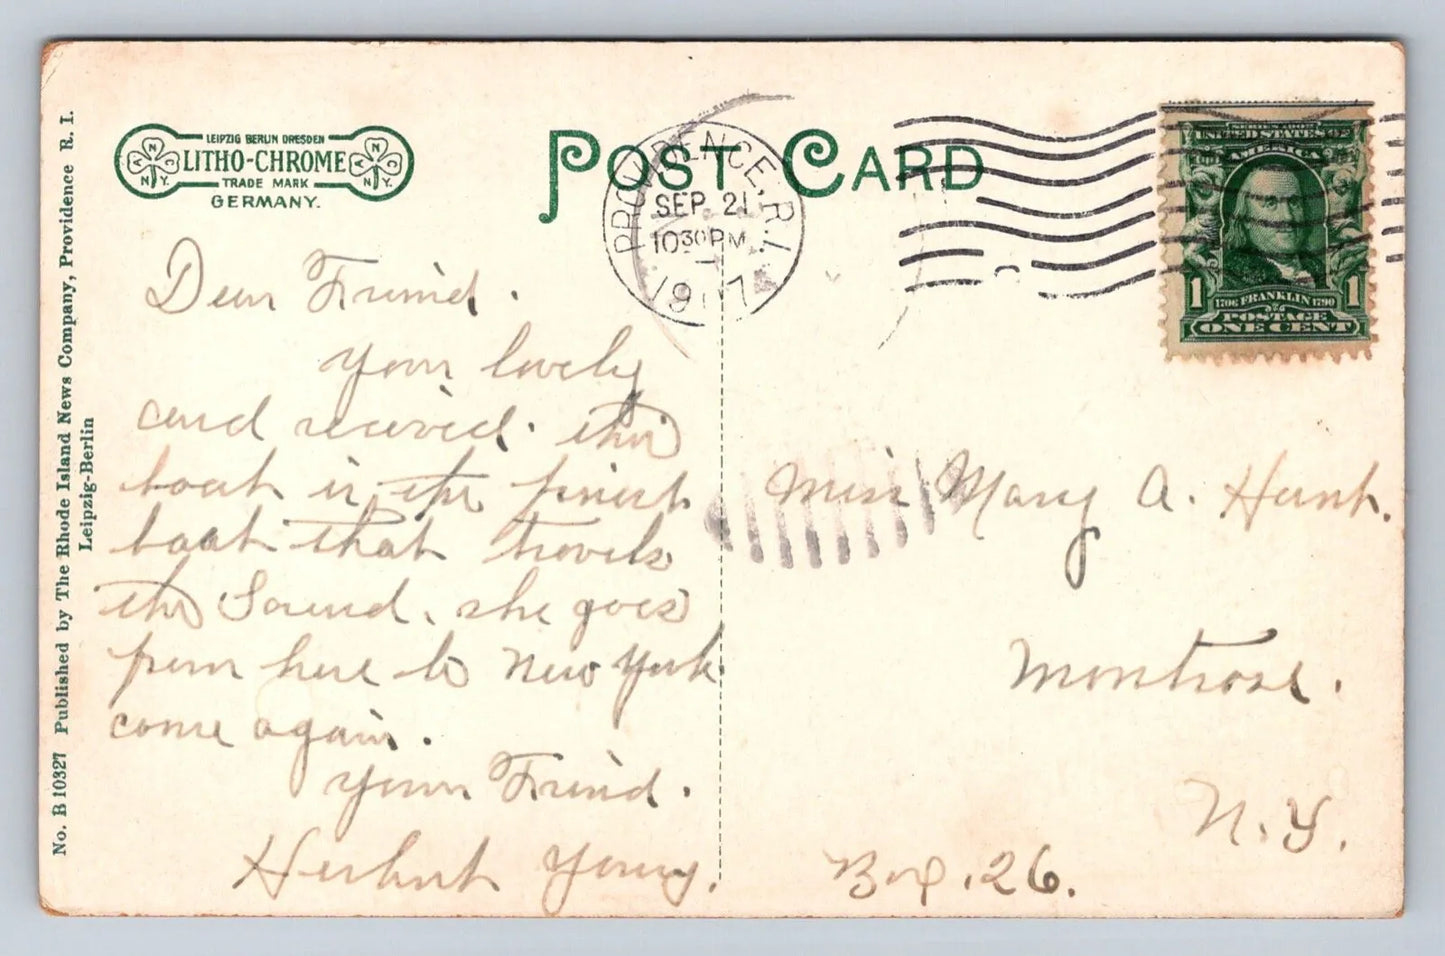 LEIPZIG BERLIN DRESDEN
LITHO-CHROME
TRADE MARK
GERMANY.
POST CARD
PROVIDENCE, R.I.
SEP 21
10 30 PM
1907
SERIES 1902
UNITED STATES OF
AMERICA
1 1
1706 FRANKLIN 1790
POSTAGE
ONE CENT
No. B 10327 Published by The Rhode Island News Company, Providence R. I.
Leipzig-Berlin
Dear Friend.
Your lovely
card received. this
boat is the finest
boat that travels
the Sound. she goes
from here to New York
come again.
Your Friend.
Herbert Young.
Miss Mary A.
Montrose.
N.Y.
Box .26.